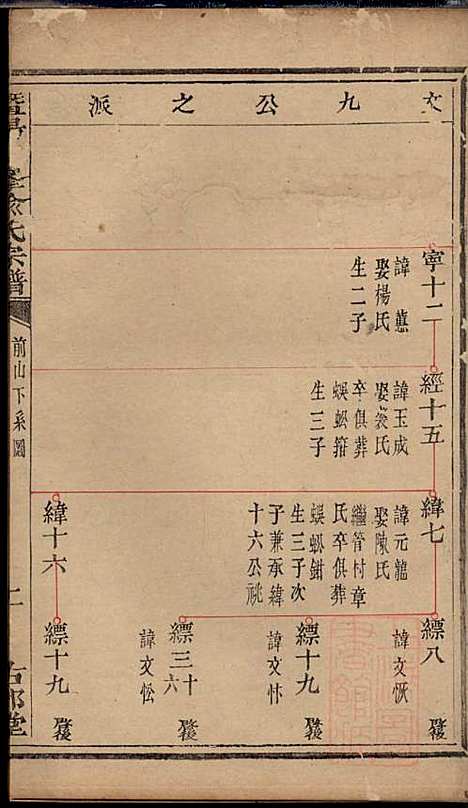 文九公之派
寧十二
諱蕙
娶楊氏
生二子
經十五
諱玉成
娶裘氏
卒俱葬
蜈蚣箝
生三子
緯七
諱元龍
娶陳氏
繼管村章
氏卒俱葬
蜈蚣鉗
生三子次
子兼承緯
十六公祧
緯十六
縹八
諱文恢
縹十九
諱文忭
縹三十六
諱文忪
縹十九
俞氏宗譜
前山下系圖
二